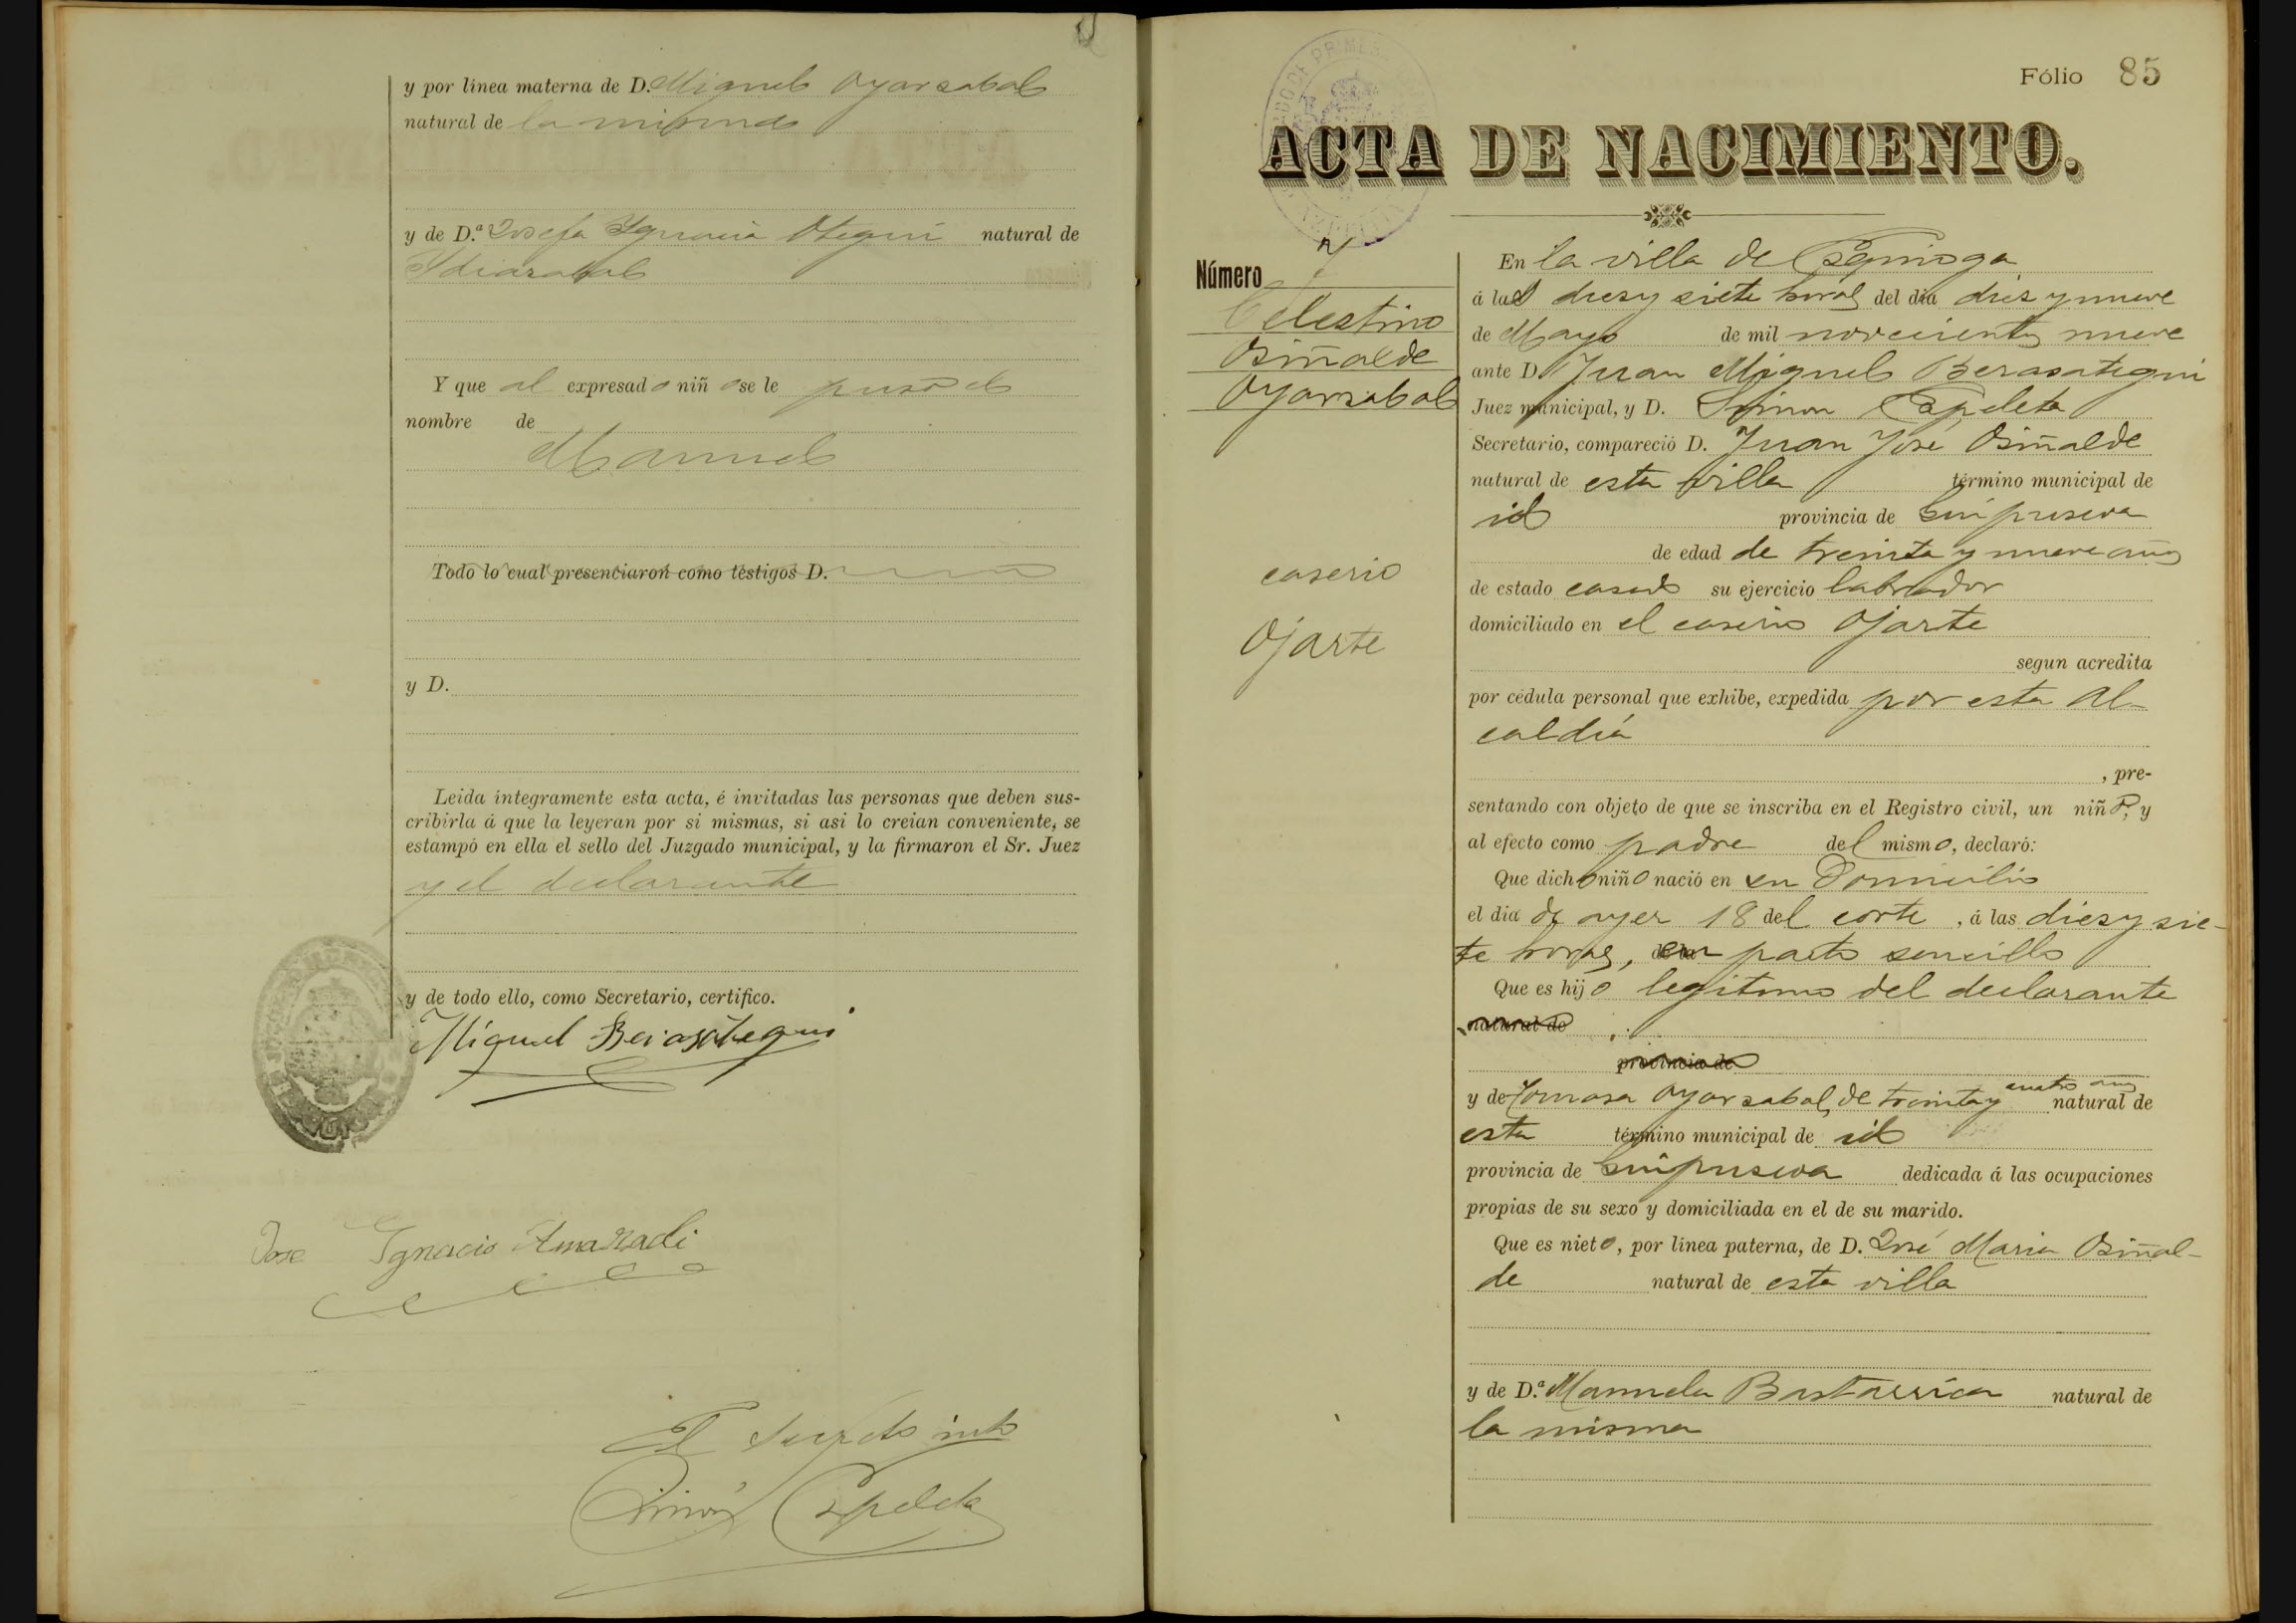 y por línea materna de D. Miguel Oyarzabal
natural de la misma
y de D.ª Josefa Ygnacia Otegui natural de
Ydiazabal
Y que al expresado niño se le puso el
nombre de
Manuel
Todo lo cual presenciaron como testigos D.
y D.
Leida íntegramente esta acta, é invitadas las personas que deben sus-
cribirla á que la leyeran por si mismas, si asi lo creian conveniente, se
estampó en ella el sello del Juzgado municipal, y la firmaron el Sr. Juez
y el declarante
y de todo ello, como Secretario, certifico.
Miguel Berasategui
Jose Ygnacio
El
Simón Ezpeleta
Fólio 85
ACTA DE NACIMIENTO.
Número
Celestino
Osiñalde
Oyarzabal
caserio
Ojarte
En la villa de
á las diez y siete horas del dia diez y nueve
de Mayo de mil novecientos nueve
ante D. Juan Miguel Berasategui
Juez municipal, y D. Simon Ezpeleta
Secretario, compareció D. Juan José Osiñalde
natural de esta villa término municipal de
id provincia de Guipuzcoa
de edad de treinta y nueve años
de estado casado su ejercicio labrador
domiciliado en el caserio Ojarte
segun acredita
por cédula personal que exhibe, expedida por esta Al-
caldía
, pre-
sentando con objeto de que se inscriba en el Registro civil, un niño, y
al efecto como padre del mismo, declaró:
Que dicho niño nació en su Domicilio
el dia de ayer 18 del corte , á las diez y sie-
te horas, en parto sencillo
Que es hijo legitimo del declarante
natural de
provincia de
y de Tomasa Oyarzabal, de treinta y cuatro años natural de
esta término municipal de id
provincia de Guipuzcoa dedicada á las ocupaciones
propias de su sexo y domiciliada en el de su marido.
Que es nieto, por línea paterna, de D. José Maria Osiñal-
de natural de esta villa
y de D.ª Manuela Bastarrica natural de
la misma